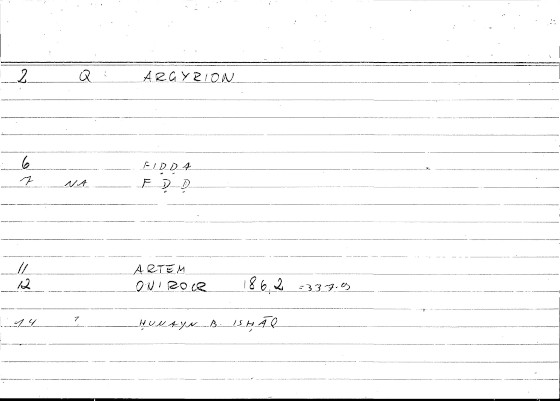 2 Q ARGYRION
6 FIḌḌA
7 NA F Ḍ Ḍ
11 ARTEM
12 ONIROCR 186,2 =337.9
14 ? ḤUNAYN B. ISḤĀQ